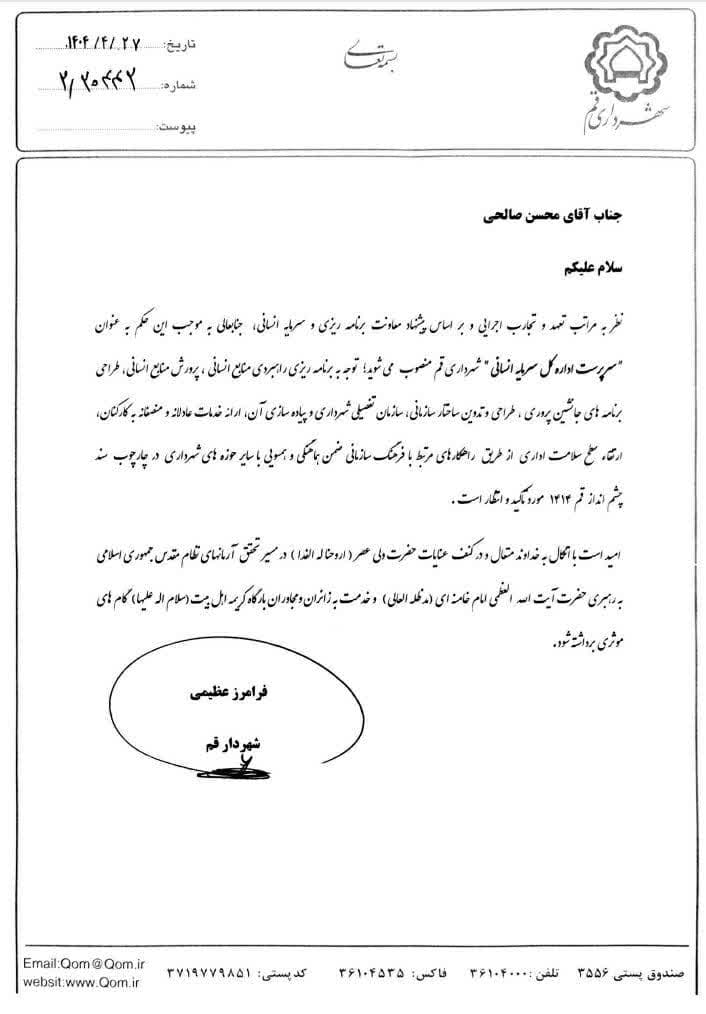 بسمه تعالی
شهرداری قم
تاریخ: ۱۴۰۴/۴/۲۷
شماره: ۲/۲۰۴۴۲
پیوست:
جناب آقای محسن صالحی
سلام علیکم
نظر به مراتب تعهد و تجارب اجرایی و بر اساس پیشنهاد معاونت برنامه ریزی و سرمایه انسانی، جنابعالی به موجب این حکم به عنوان
"سرپرست اداره کل سرمایه انسانی" شهرداری قم منصوب می شوید؛ توجه به برنامه ریزی راهبردی منابع انسانی، پرورش منابع انسانی، طراحی
برنامه های جانشین پروری، طراحی و تدوین ساختار سازمانی، سازمان تفضیلی شهرداری و پیاده سازی آن، ارائه خدمات عادلانه و منصفانه به کارکنان،
ارتقاء سطح سلامت اداری از طریق راهکارهای مرتبط با فرهنگ سازمانی ضمن هماهنگی و همسویی با سایر حوزه های شهرداری در چارچوب سند
چشم انداز قم ۱۴۱۴ مورد تأکید و انتظار است.
امید است با اتکال به خداوند متعال و در کنف عنایات حضرت ولی عصر (ارواحنا له الفدا) در مسیر تحقق آرمانهای نظام مقدس جمهوری اسلامی
به رهبری حضرت آیت الله العظمی امام خامنه ای (مدظله العالی) و خدمت به زائران و مجاوران بارگاه کریمه اهل بیت (سلام اله علیها) گام های
موثری برداشته شود.
فرامرز عظیمی
شهردار قم
صندوق پستی ۳۵۵۶ تلفن: ۳۶۱۰۴۰۰۰ فاکس: ۳۶۱۰۴۵۳۵ کدپستی: ۳۷۱۹۷۷۹۸۵۱
Email:Qom@Qom.ir
websit:www.Qom.ir